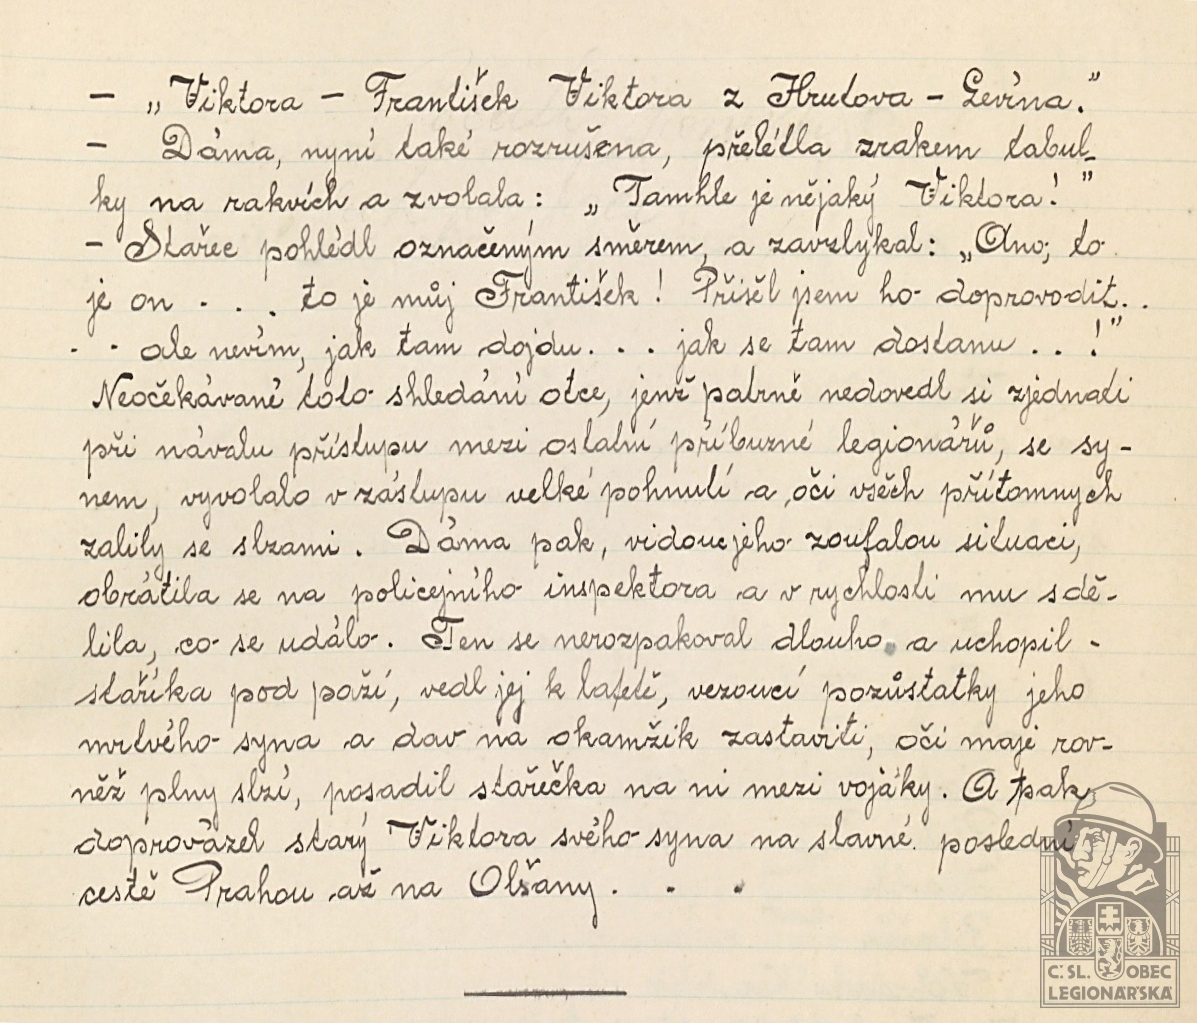 – „Viktora – František Viktora z Hrutova – Levína."
– Dáma, nyní také rozrušena, přelétla zrakem tabul-
ky na rakvích a zvolala: „Tamhle je nějaký Viktora!"
– Stařec pohlédl označeným směrem, a zavzlykal: „Ano; to
je on . . . to je můj František! Přišel jsem ho doprovodit. .
. . ale nevím, jak tam dojdu. . . jak se tam dostanu . . !"
Neočekávané toto shledání otce, jenž patrně nedovedl si zjednati
při návalu přístupu mezi ostatní příbuzné legionářů, se sy-
nem, vyvolalo v zástupu velké pohnutí a oči všech přítomnych
zalily se slzami. Dáma pak, vidouc jeho zoufalou situaci,
obrátila se na policejního inspektora a v rychlosti mu sdě-
lila, co se událo. Ten se nerozpakoval dlouho a uchopil -
staříka pod paží, vedl jej k lafetě, vezoucí pozůstatky jeho
mrtvého syna a dav na okamžik zastaviti, oči maje rov-
něž plny slzí, posadil stařečka na ni mezi vojáky. A pak
doprovázel starý Viktora svého syna na slavné poslední
cestě Prahou až na Olšany . . .
Č. SL. OBEC
LEGIONÁŘSKÁ